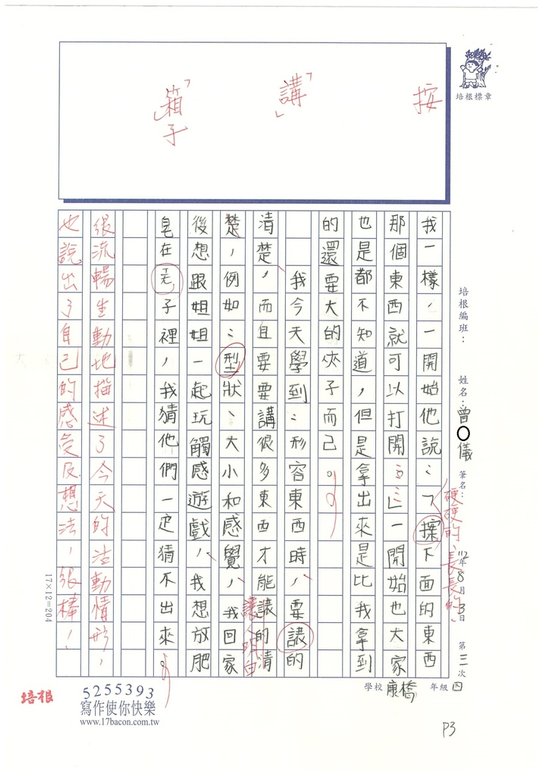 按
「講」
「箱」子
培根標章
培根編班：
姓名：曾○儀
筆名：
硬硬的、長長的
112年8月3日
第三次
學校康橋
年級四
我一樣，一開始他說：「探下面的東西
那個東西就可以打開……」一開始也大家
也是都不知道，但是拿出來是比我拿到
的還要大的夾子而已。
我今天學到：形容東西時，要讓的
清楚，而且要要講很多東西才能讓的清
楚，例如：型狀、大小和感覺，我回家
後想跟姐姐一起玩觸感遊戲，我想放肥
皂在毛子裡，我猜他們一定猜不出來。
講明白
很流暢生動地描述了今天的活動情形，
也說出了自己的感受及想法，很棒！
17×12=204
培根
5255393
寫作使你快樂
www.17bacon.com.tw
P3